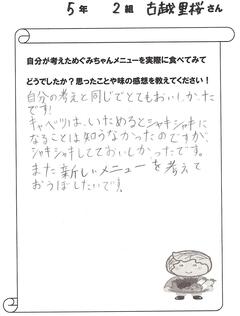 5年 2組 古越里桜さん
自分が考えためぐみちゃんメニューを実際に食べてみて
どうでしたか？思ったことや味の感想を教えてください！
自分の考えと同じでとてもおいしかった
です！
キャベツは、いためるとシャキシャキに
なることは知らなかったのですが、
シャキシャキしてておいしかったです。
また新しいメニューを考えて
おうぼしたいです！